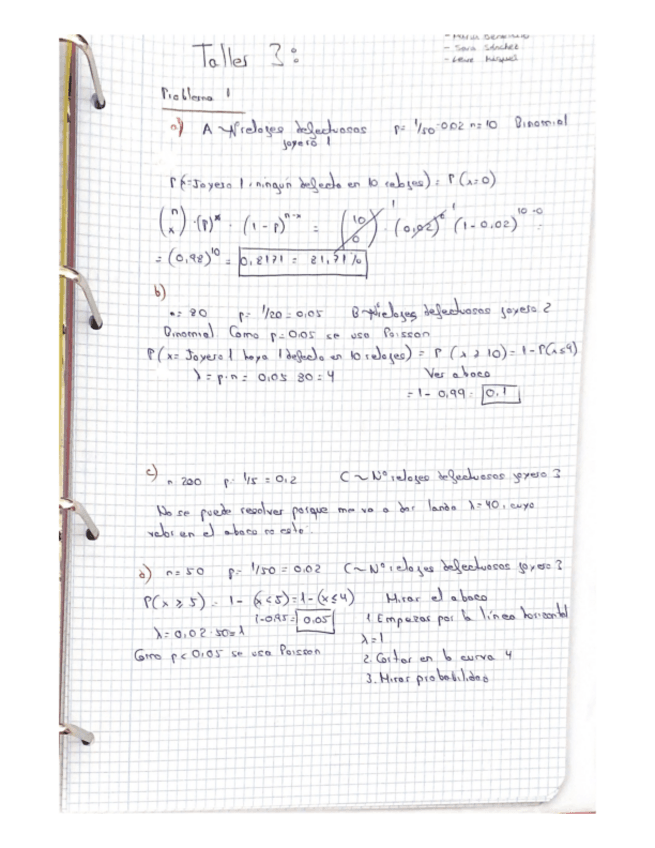 - María
- Sara Sánchez
Taller 3:
Problema 1
a) A ~ Nº relojes defectuosos p= 1/50=0.02 n=10 Binomial
joyero 1
P(x=Joyero 1 ningún defecto en 10 relojes) = P(x=0)
(n x) · (p)^x · (1-p)^n-x = (10 0) · (0,02)^0 1 1 (1-0,02)^10-0 =
= (0,98)^10 = 0,8171 = 81,71%
b)
n= 80 p= 1/20=0,05 B~Nº relojes defectuosos joyero 2
Binomial. Como p=0.05 se usa Poisson
P(x= Joyero 1 haya 1 defecto en 10 relojes) = P(x ≥ 10) = 1-P(x≤9)
λ = p·n = 0,05 80 = 4 Ver abaco
= 1- 0,99 = 0,1
c) n 200 p= 1/5 = 0,2 C ~ Nº relojes defectuosos joyero 3
No se puede resolver porque me va a dar landa λ=40, cuyo
valor en el abaco no esta.
n= 50 p= 1/50 = 0.02 C~ Nº relojes defectuosos joyero ?
P(x ≥ 5) = 1- (x<5) = 1-(x≤4) Mirar el abaco
1-0.95= 0.05 1. Empezar por la línea horizontal
λ= 0,02·50=1 λ=1
Como p<0.05 se usa Poisson 2. Cortar en la curva 4
3. Mirar probabilidad